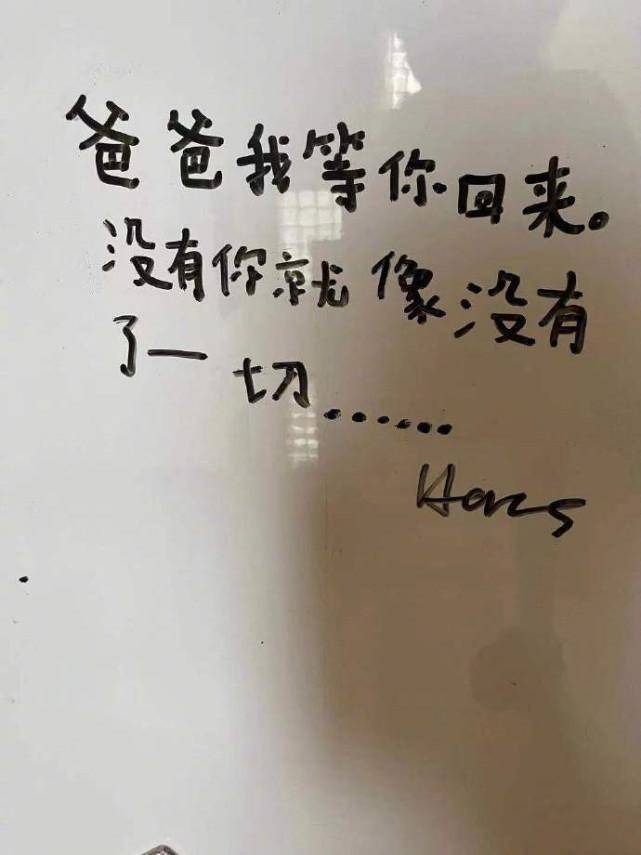 爸爸我等你回来。
没有你就像没有
了一切......